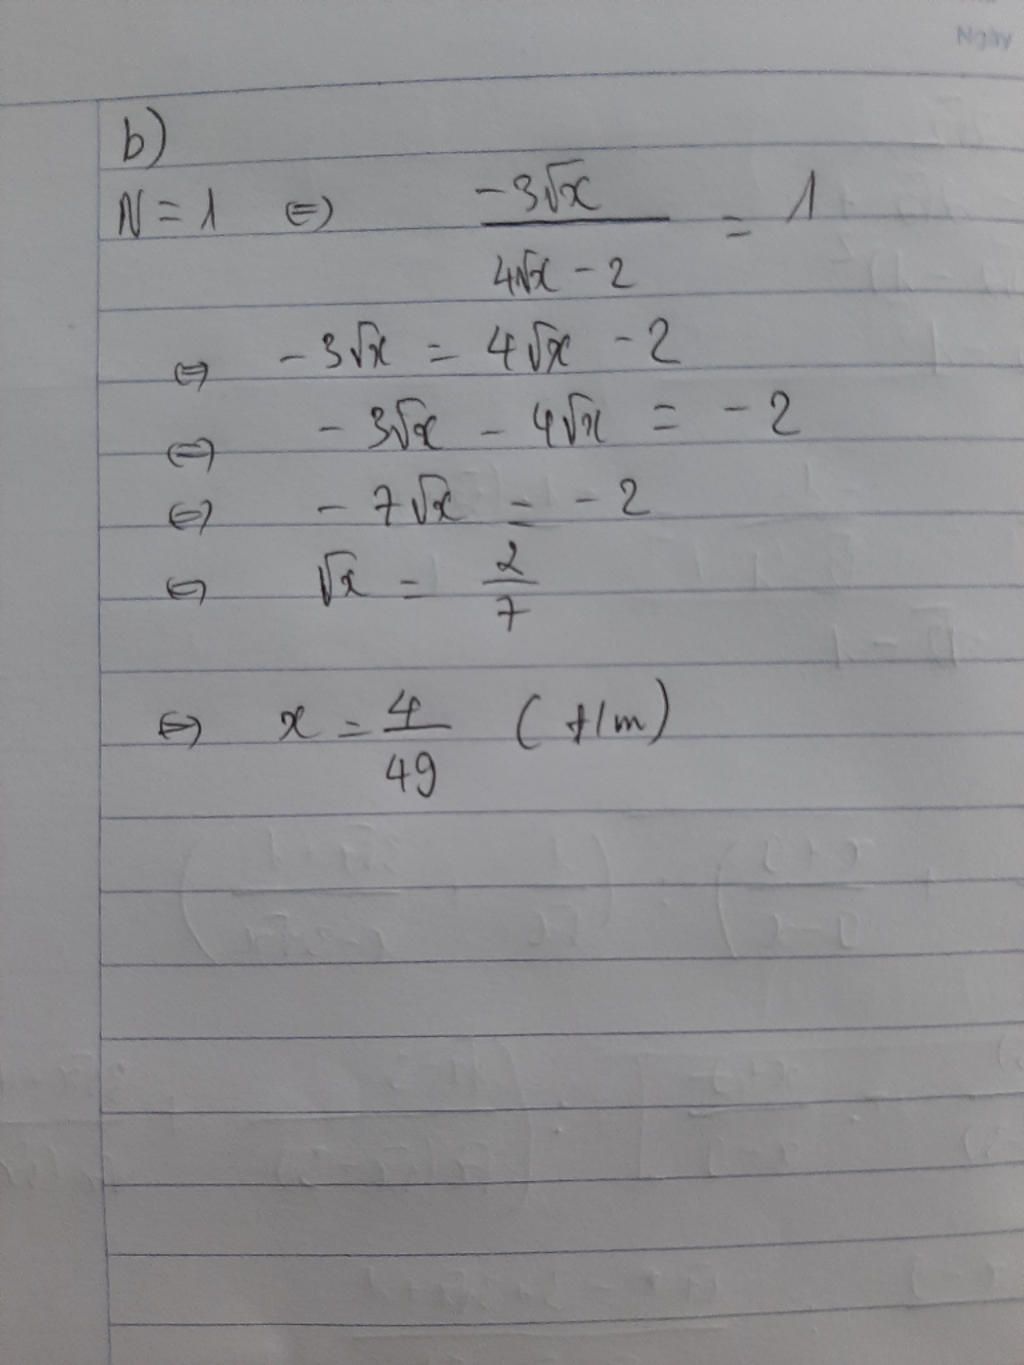 Ngày
b)
N = 1 ⇔ -3√x / (4√x - 2) = 1
⇔ -3√x = 4√x - 2
⇔ -3√x - 4√x = -2
⇔ -7√x = -2
⇔ √x = 2/7
⇔ x = 4/49 (t/m)